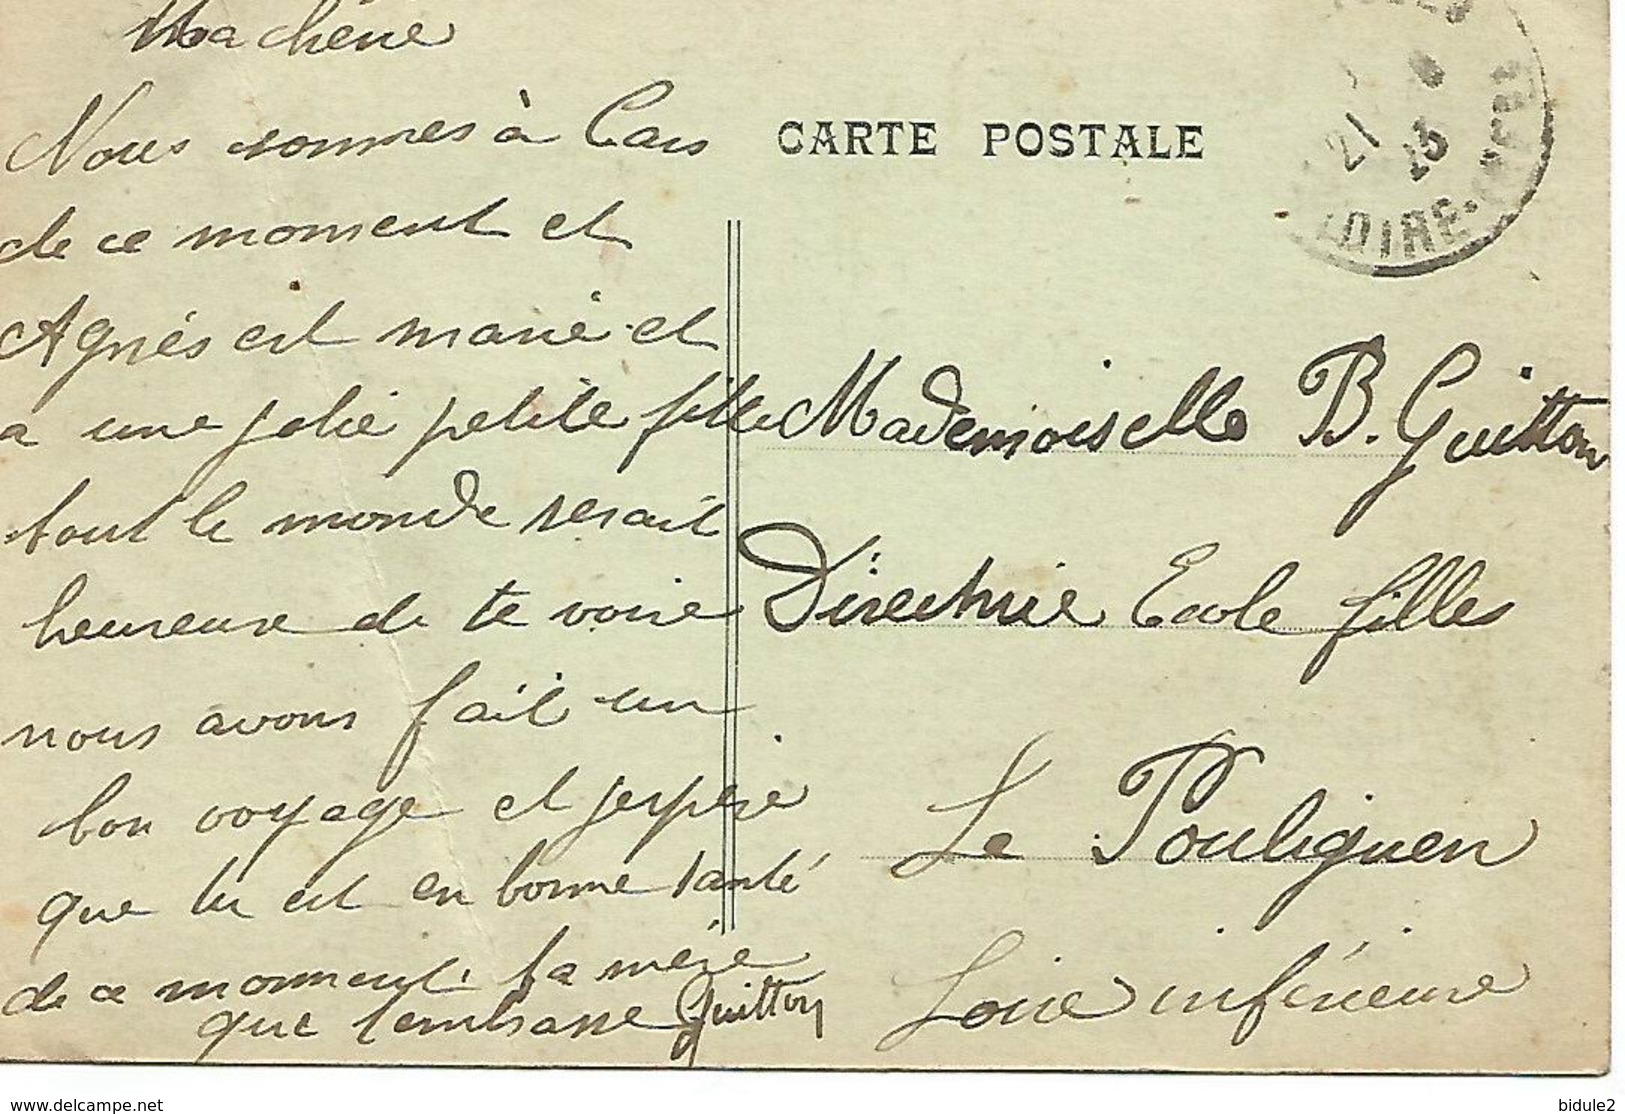 Ma chérie
Nous sommes à Cars
de ce moment et
Agnès est marié et
a une jolie petite fille
tout le monde serait
heureuse de te voire
nous avons fait un
bon voyage et jespère
que tu est en bonne santé
de ce moment. ta mère
que t'embrasse Guitton
CARTE POSTALE
21
LOIRE
Mademoiselle B. Guitton
Directrice Ecole filles
Le Pouliguen
Loire inférieure
www.delcampe.net
bidule2